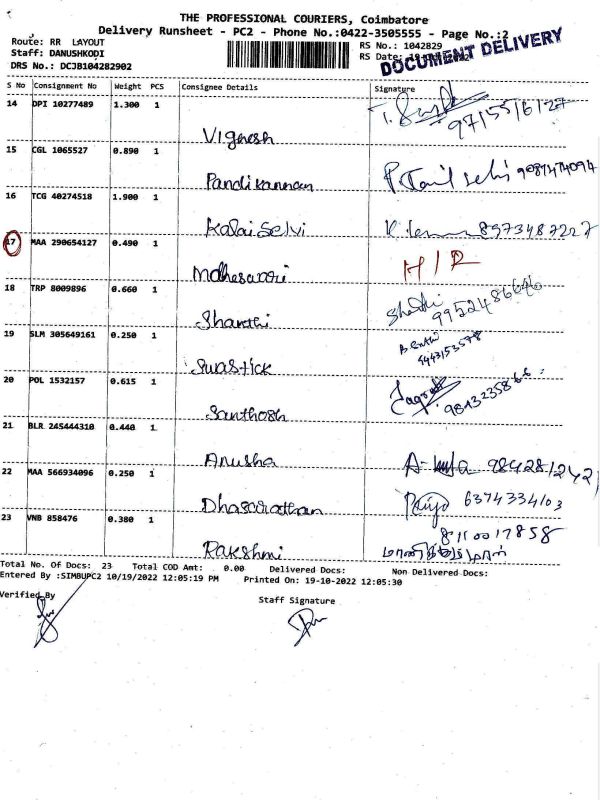 THE PROFESSIONAL COURIERS, Coimbatore
Delivery Runsheet - PC2 - Phone No.:0422-3505555 - Page No.:2
Route: RR LAYOUT
RS No.: 1042829
Staff: DANUSHKODI
RS Date:
DOCUMENT DELIVERY
DRS No.: DCJB104282902
S No Consignment No Weight PCS Consignee Details Signature
14 DPI 10277489 1.300 1
Vignesh 9715516127
15 CGL 1065527 0.890 1
Pandikannan P. Tamil selvi
16 TCG 40274518 1.900 1
Kalai selvi 8973487227
17 MAA 290654127 0.490 1
Maheswari
18 TRP 8009896 0.660 1
Shanthi 9952486646
19 SLM 305649161 0.250 1
Swastick 9443153578
20 POL 1532157 0.615 1
Santhosh 9843235866
21 BLR 245444310 0.440 1
Anusha 9842812421
22 MAA 566934096 0.250 1
Dhasarathan Priya 6374334103
23 VNB 858476 0.380 1
8110017858
Rakshmi
Total No. Of Docs: 23 Total COD Amt: 0.00 Delivered Docs: Non Delivered Docs:
Entered By :SIMBUPC2 10/19/2022 12:05:19 PM Printed On: 19-10-2022 12:05:30
Verified By
Staff Signature